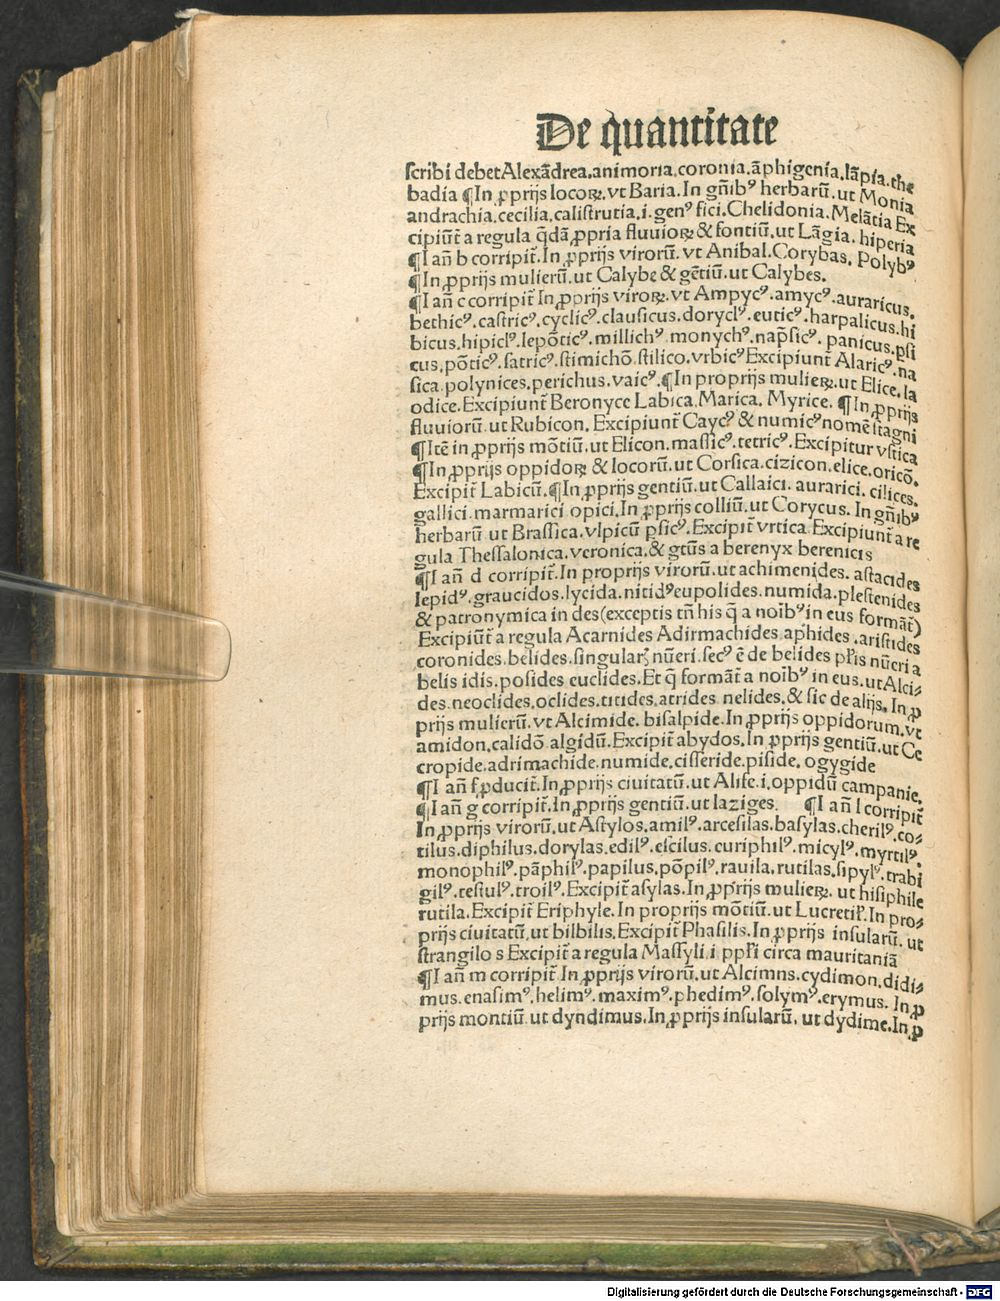 De quantitate
scribi debet Alexādrea.animoria.coronia.āphigenía.lāpía.the
badía ¶In ꝓprijs locoꝝ.vt Baria.In gn̄ibꝰ herbarū.ut Monia
andrachia.cecilia.calistrutia.i.genꝰ fici.Chelidonia.Melātia Ex
cipiūt̄ a regula q̄dā ꝓpria fluuioꝝ & fontiū.ut Lāgia.hiperia
¶I an̄ b corripit̄.In ꝓprijs virorū.vt Anibal.Corybas.Polybꝰ
¶In ꝓprijs mulierū.ut Calybe & gētiū.ut Calybes.
¶I an̄ c corripit̄ In ꝓprijs viroꝝ.vt Ampycꝰ.amycꝰ.auraricus.
bethicꝰ.castricꝰ.cyclicꝰ.clausicus.doryclꝰ.euticꝰ.harpalicus.hi
bicus.hipiclꝰ.lepōticꝰ.millichꝰ monychꝰ.nap̄sicꝰ.panicus.psi
cus.pōticꝰ.satricꝰ.stimichō stilico.vrbicꝰ Excipiunt̄ Alaricꝰ.na
sica polynices.perichus.vaicꝰ.¶In proprijs mulieꝝ.ut Elice.la
odice.Excipiunt̄ Beronyce Labica.Marica.Myrice. ¶In ꝓprijs
fluuiorū.ut Rubicon.Excipiunt̄ Caycꝰ & numicꝰ nomē stagni
¶Itē in ꝓprijs mōtiū.ut Elicon.massicꝰ.tetricꝰ.Excipitur vstica
¶In ꝓprijs oppidoꝝ & locorū.ut Corsica.cizicon.elice.oricō.
Excipit̄ Labicū.¶In ꝓprijs gentiū.ut Callaici.aurarici.cilices.
gallici.marmarici opici.In ꝓprijs colliū.ut Corycus. In gn̄ibꝰ
herbarū ut Brassica.vlpicū psicꝰ.Excipit̄ vrtica Excipiunt̄ a re
gula Thessalonica.veronica.& gtūs a berenyx berenicis
¶I an̄ d corripit̄.In proprijs virorū.ut achimenides.astacides
lepidꝰ.graucidos.lycida.nitidꝰ eupolides.numida.plestenides
& patronymica in des(exceptis tn̄ his q̄ a noībꝰ in eus formāt̄)
Excipiūt̄ a regula Acarnides Adirmachides aphides.aristides
coronides.belides.singulaꝝ nūeri.secꝰ ē de belides pl̄is nūeri a
belis idis.posides euclides.Et q̄ formāt̄ a noībꝰ in eus.ut Alci⸗
des.neoclides.oclides.titides.atrides nelides.& sic de alijs.In ꝓ
prijs mulierū.vt Alcimide.bisalpide.In ꝓprijs oppidorum.vt
amidon.calidō algidū.Excipit̄ abydos.In ꝓprijs gentiū.ut Ce
cropide.adrimachide.numide.cisseride.piside.ogygide
¶I an̄ f ꝓducit̄.In ꝓprijs ciuitatū.ut Alife.i.oppidū campanie.
¶I an̄ g corripit̄.In ꝓprijs gentiū.ut laziges. ¶I an̄ l corripit̄
In ꝓprijs virorū.ut Astylos.amilꝰ.arcesilas.basylas.cherilꝰ.co⸗
tilus.diphilus.dorylas.edilꝰ.escilus.euriphilꝰ.micylꝰ.myrtilꝰ.
monophilꝰ.pāphilꝰ.papilus.pōpilꝰ.rauila.rutilas.sipylꝰ.trabi
gilꝰ.tesiulꝰ.troilꝰ.Excipit̄ asylas.In ꝓprijs mulieꝝ.ut hisiphile
rutila.Excipit̄ Eriphyle.In proprijs mōtiū.ut Lucretil̄.In pro⸗
prijs ciuitatū.ut bilbilis.Excipit̄ Phasilis.In ꝓprijs insularū.ut
strangilo s Excipit̄ a regula Massyli.i ppl̄i circa mauritaniā
¶I an̄ m corripit̄.In ꝓprijs virorū.ut Alcimns.cydimon.didi⸗
mus.enasimꝰ.helimꝰ.maximꝰ.phedimꝰ.solymꝰ.erymus. In ꝓ
prijs montiū.ut dyndimus.In ꝓprijs insularū.ut dydime.In ꝓ
Digitalisierung gefördert durch die Deutsche Forschungsgemeinschaft - DFG